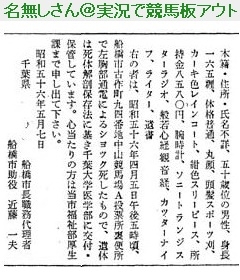 名無しさん@実況で競馬板アウト
本籍・住所・氏名不詳、五十歳位の男性、身長
一六五糎、体格普通、丸顔、頭髪スポーツ刈、
カーキ色レインコート、紺色スリーピース、所
持金八五八〇円、腕時計、ソニートランジス
ターラジオ、般若心経観音経、カッターナイ
フ、ライター、遺書
右の者は、昭和五十六年四月五日午後五時頃、
船橋市古作町九四番資中山競馬場A投票所裏便所
で左胸部通電によるショック死したもので、遺体
は死体解剖保存法に基き千葉大学医学部に交付・
保管しています。心当たりの方は当市福祉部厚生
課まで申し出て下さい。
昭和五十六年五月七日
千葉県
船橋市長職務代理者
船橋市助役　近藤　一夫